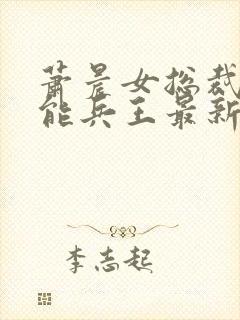 萧晨女总裁
能兵王最新
李志起